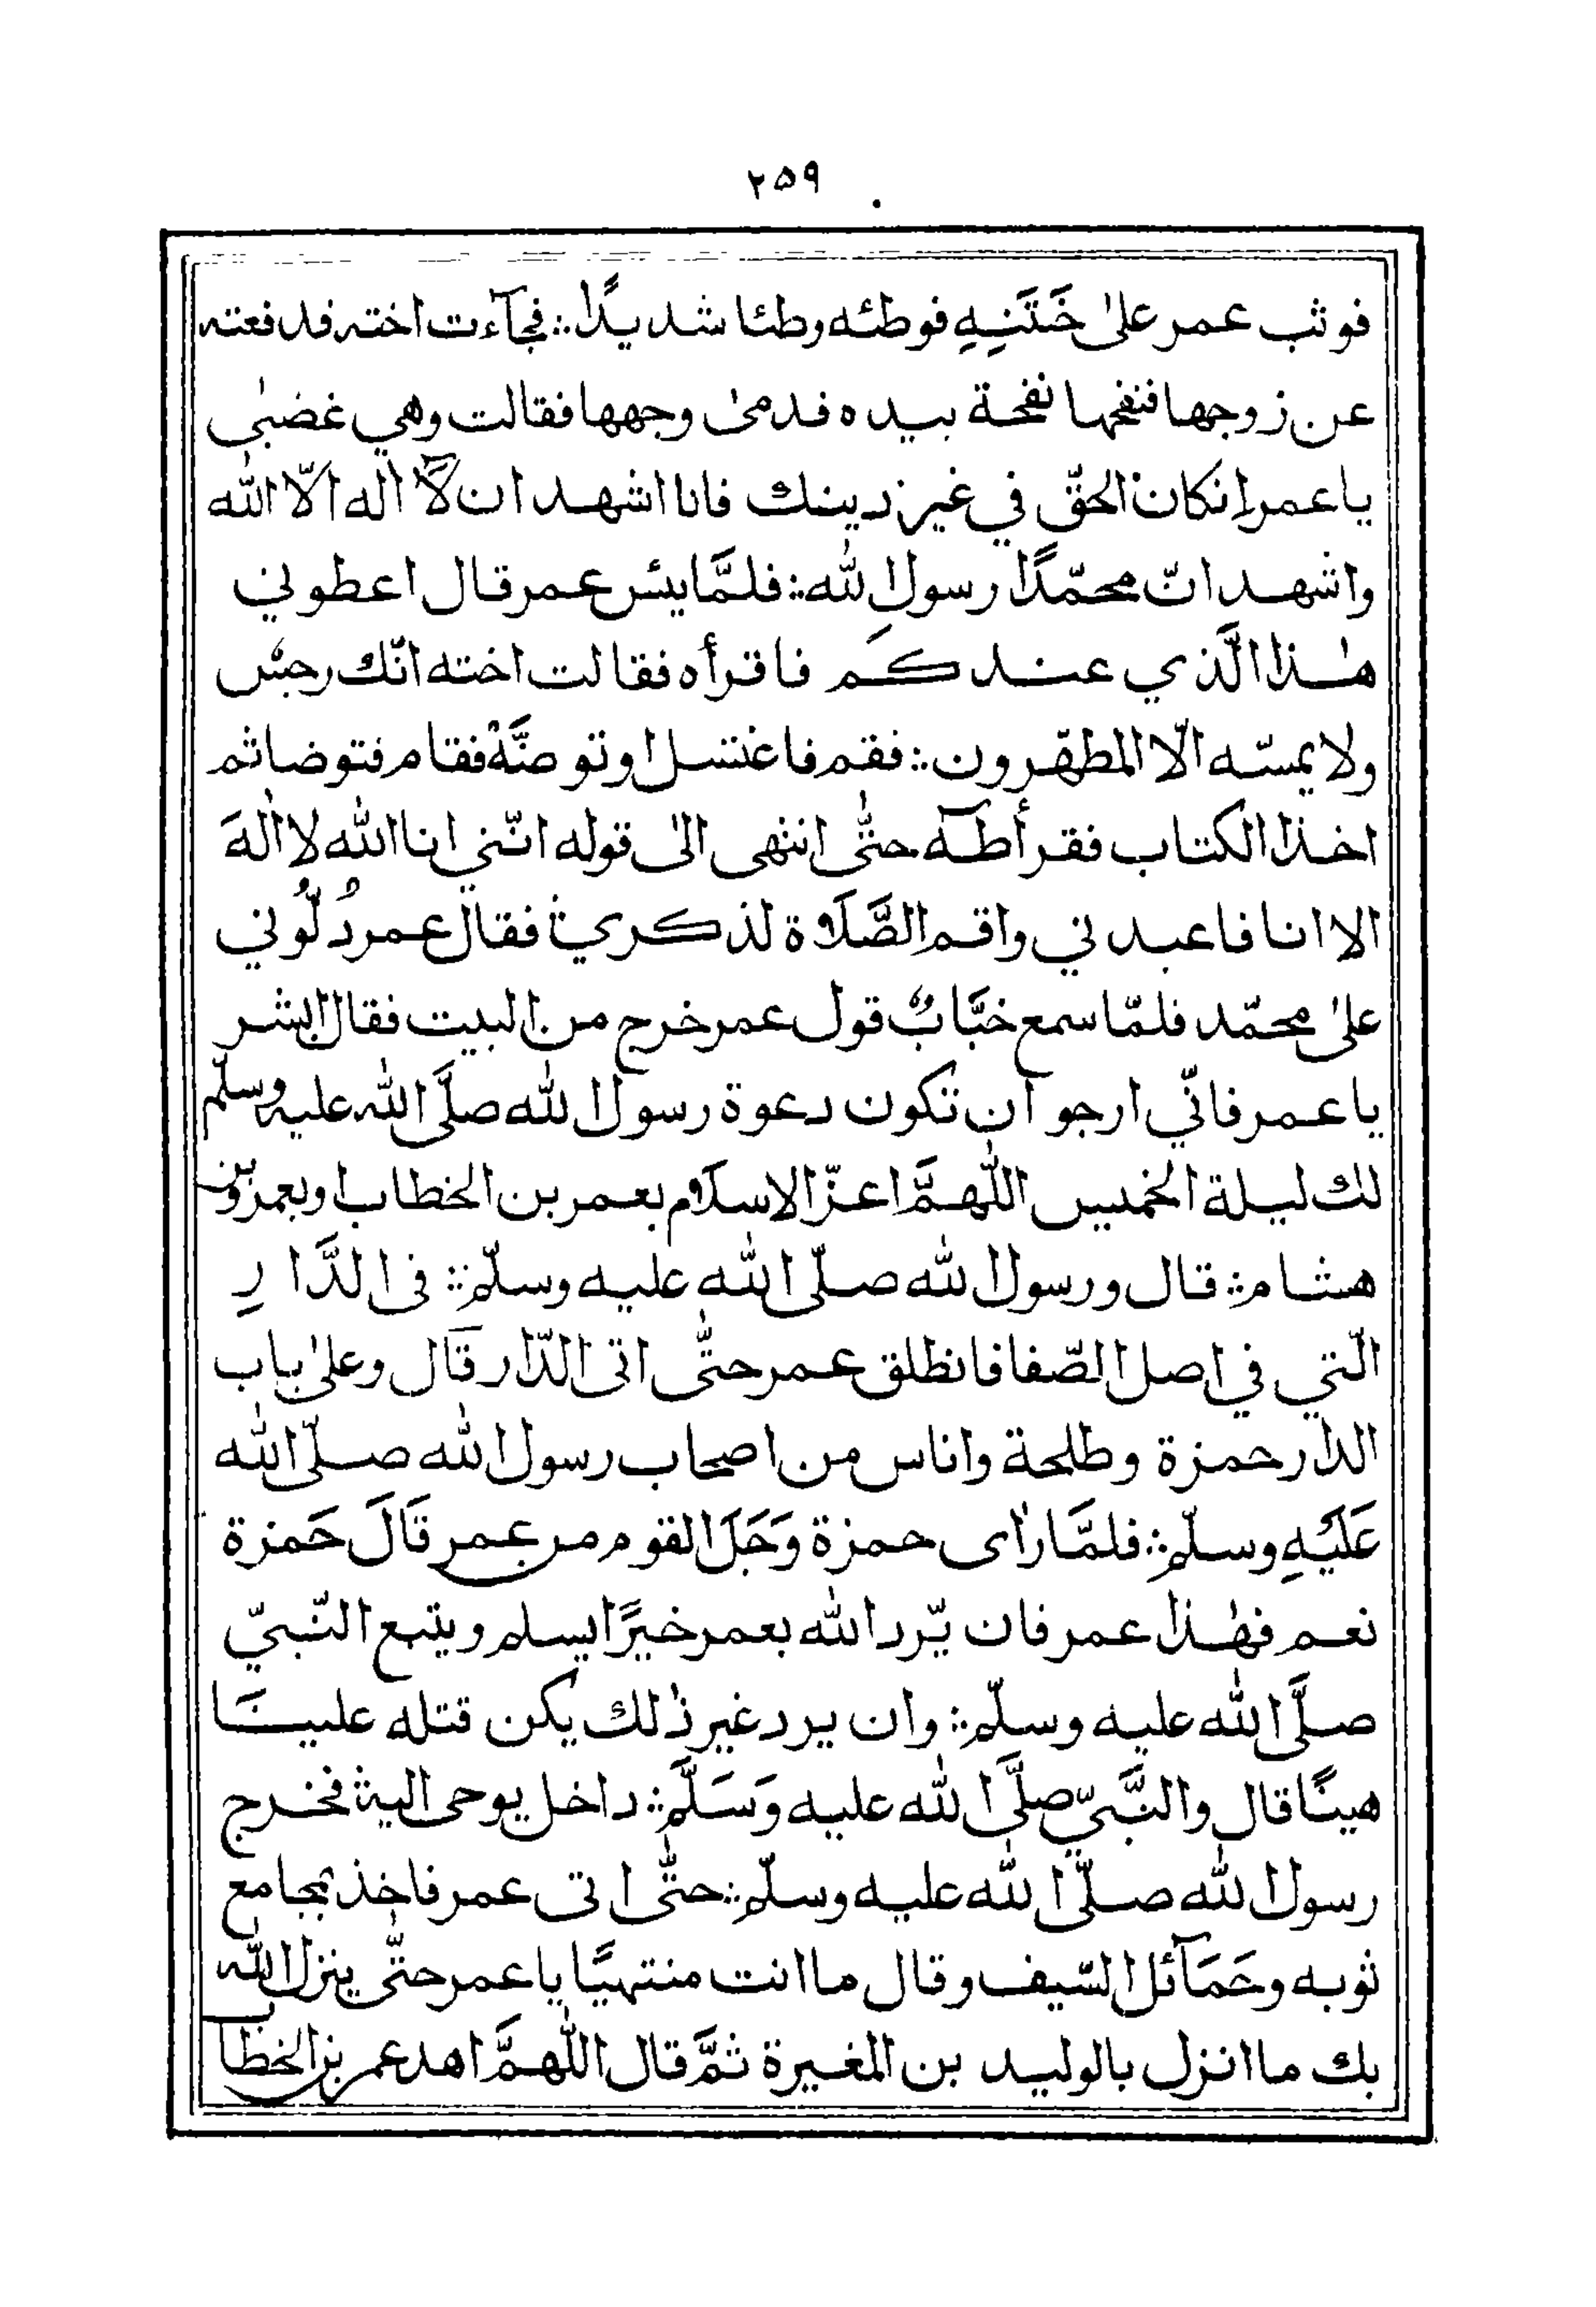 ۲۵۹
فوثب عمر علىٰ خَتَنِهِ فوطئه وطئا شديدًا؞ فجآءت اخته فدفعته
عن زوجها فنفحها نفحة بيده فدمىٰ وجهها فقالت وهي غضبىٰ
ياعمر انكان الحقّ في غير دينك فانا اشهد ان لّآ اله الّا الله
واشهد انّ محمّدًا رسول الله؞ فلمَّا يئس عمر قال اعطوني
هٰذا الَّذي عندكم فاقرأه فقالت اخته انّك رجسٌ
ولا يمسّه الّا المطهّرون؞ فقم فاغتسل او توضّأ فقام فتوضا ثم
اخذ الكتاب فقرأ طٰهٓ حتّٰى انتهى الىٰ قوله انّني انا الله لا الٰهَ
الا انا فاعبدني واقم الصَّلَاة لذكري؞ فقال عمر دُلُّوني
علىٰ محمّد فلمّا سمع خبَّابٌ قول عمر خرج من البيت فقال ابشر
ياعمر فانّي ارجو ان تكون دعوة رسول الله صلَّى الله عليه وسلّم
لك ليلة الخميس اللّٰهمَّ اعزّ الاسلام بعمر بن الخطاب او بعمرو بن
هشام؞ قال ورسول الله صلّى الله عليه وسلّم؞ فى الدَّارِ
الّتي في اصل الصّفا فانطلق عمر حتّٰى اتى الدّار قال وعلىٰ باب
الدار حمزة وطلحة واناس من اصحاب رسول الله صلّى الله
عَلَيْهِ وسلّم؞ فلمَّا راٰى حمزة وَجَلَ القوم من عمر قَالَ حَمزة
نعم فهٰذا عمر فان يّرد الله بعمر خيرًا يسلم ويتبع النّبيّ
صلَّى الله عليه وسلّم؞ وان يرد غير ذٰلك يكن قتله علينَا
هينًا قال والنَّبيّ صلَّى الله عليه وَسَلَّم؞ داخل يوحى اليه؞ فخرج
رسول الله صلّى الله عليه وسلّم؞ حتّٰى اتى عمر فاخذ بمجامع
ثوبه وحَمَآئل السّيف وقال ما انت منتهيًا ياعمر حتّٰى ينزل الله
بك ما انزل بالوليد بن المغيرة ثمَّ قال اللّٰهمَّ اهد عمر بن الخطاب